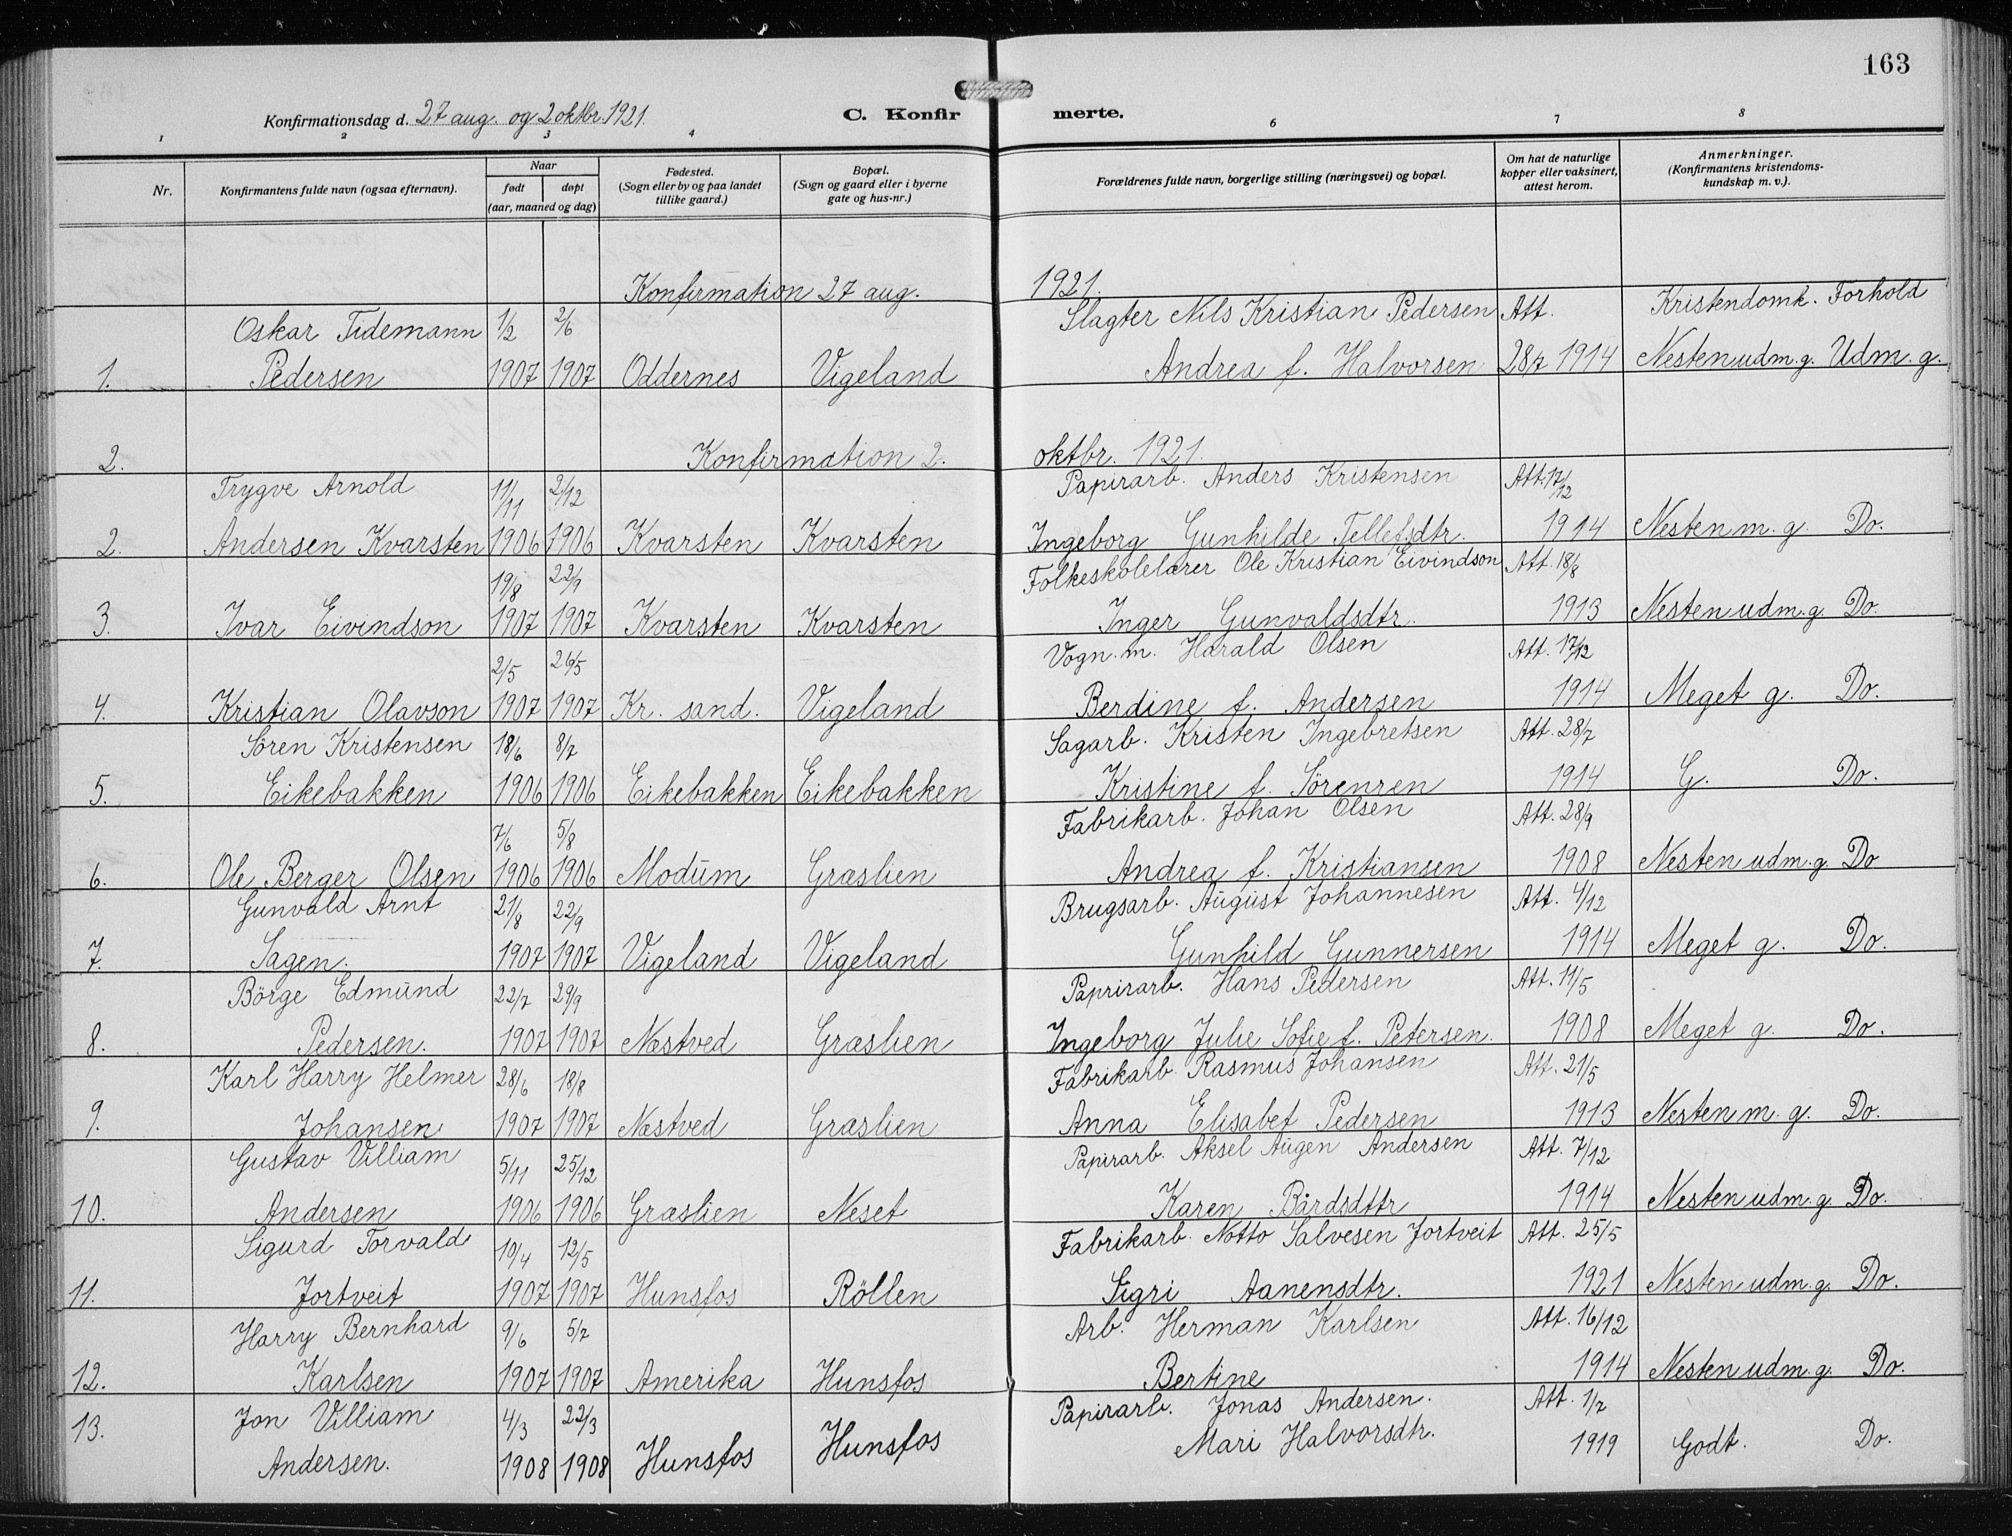 163
Konfirmationsdag d. 27 aug. og 2 oktbr. 1921. C. Konfir merte.
1 2 3 4 6 7 8
Nr. Konfirmantens fulde navn (ogsaa efternavn). Naar født døpt (aar, maaned og dag) Fødested. (Sogn eller by og paa landet tillike gaard.) Bopæl. (Sogn og gaard eller i byerne gate og hus-nr.) Forældrenes fulde navn, borgerlige stilling (næringsvei) og bopæl. Om hat de naturlige kopper eller vaksinert, attest herom. Anmerkninger. (Konfirmantens kristendoms-kundskap m. v.).
Konfirmation 27 aug. 1921.
Oskar Tidemann 1/2 2/6 Slagter Nils Kristian Pedersen Att. Kristendomk. Forhold
1. Pedersen 1907 1907 Oddernes Vigeland Andrea f. Halvorsen 28/7 1914 Nesten udm. g. Udm. g.
2. Konfirmation 2. oktbr. 1921.
Trygve Arnold 11/11 2/12 Papirarb. Anders Kristensen Att. 17/12
2. Andersen Kvarsten 1906 1906 Kvarsten Kvarsten Ingeborg Gunhilde Tellefsdtr. 1914 Nesten m. g. Do.
19/8 22/9 Folkeskolelærer Ole Kristian Eivindson Att. 18/8
3. Ivar Eivindson 1907 1907 Kvarsten Kvarsten Inger Gunvaldsdtr. 1913 Nesten udm. g. Do.
2/5 26/5 Vogn. m. Harald Olsen Att. 17/12
4. Kristian Olavson 1907 1907 Kr. sand. Vigeland Berdine f. Andersen 1914 Meget g. Do.
Sören Kristensen 18/6 8/7 Sagarb. Kristen Ingebretsen Att. 28/7
5. Eikebakken 1906 1906 Eikebakken Eikebakken Kristine f. Sörenren 1914 G. Do.
7/6 5/8 Fabrikarb. Johan Olsen Att. 28/9
6. Ole Berger Olsen 1906 1906 Modum Græslien Andrea f. Kristiansen 1908 Nesten udm. g. Do
Gunvald Arnt 21/8 22/9 Brugsarb. August Johannesen Att. 4/12
7. Sagen. 1907 1907 Vigeland Vigeland Gunhild Gunnersen 1914 Meget g. Do.
Börge Edmund 22/7 29/9 Paprirarb. Hans Pedersen Att. 11/5
8. Pedersen. 1907 1907 Næstved Græslien Ingeborg Julie Sofie f. Petersen. 1908 Meget g. Do.
Karl Harry Helmer 28/6 18/8 Fabrikarb. Rasmus Johansen Att. 21/5
9. Johansen 1907 1907 Næstved Græslien Anna Elisabet Pedersen 1913 Nesten m. g. Do.
Gustav Villiam 5/11 25/12 Papirarb. Aksel Augen Andersen Att. 7/12
10. Andersen 1906 1906 Græslien Neset Karen Bårdsdttr 1914 Nesten udm. g. Do.
Sigurd Torvald 10/4 12/5 Fabrikarb. Notto Salvesen Jortveit Att. 25/5
11. Jortveit 1907 1907 Hunsfos Röllen Sigri Aanensdtr. 1921 Nesten udm. g. Do.
Harry Bernhard 9/6 5/7 Arb. Herman Karlsen Att. 16/12
12. Karlsen 1907 1907 Amerika Hunsfos Bertine 1914 Nesten udm. g. Do.
13. Jon Villiam 4/3 22/3 Papirarb. Jonas Andersen. Att. 1/7
Andersen. 1908 1908 Hunsfos Hunsfos Mari Halvorsdtr. 1919 Godt. Do.